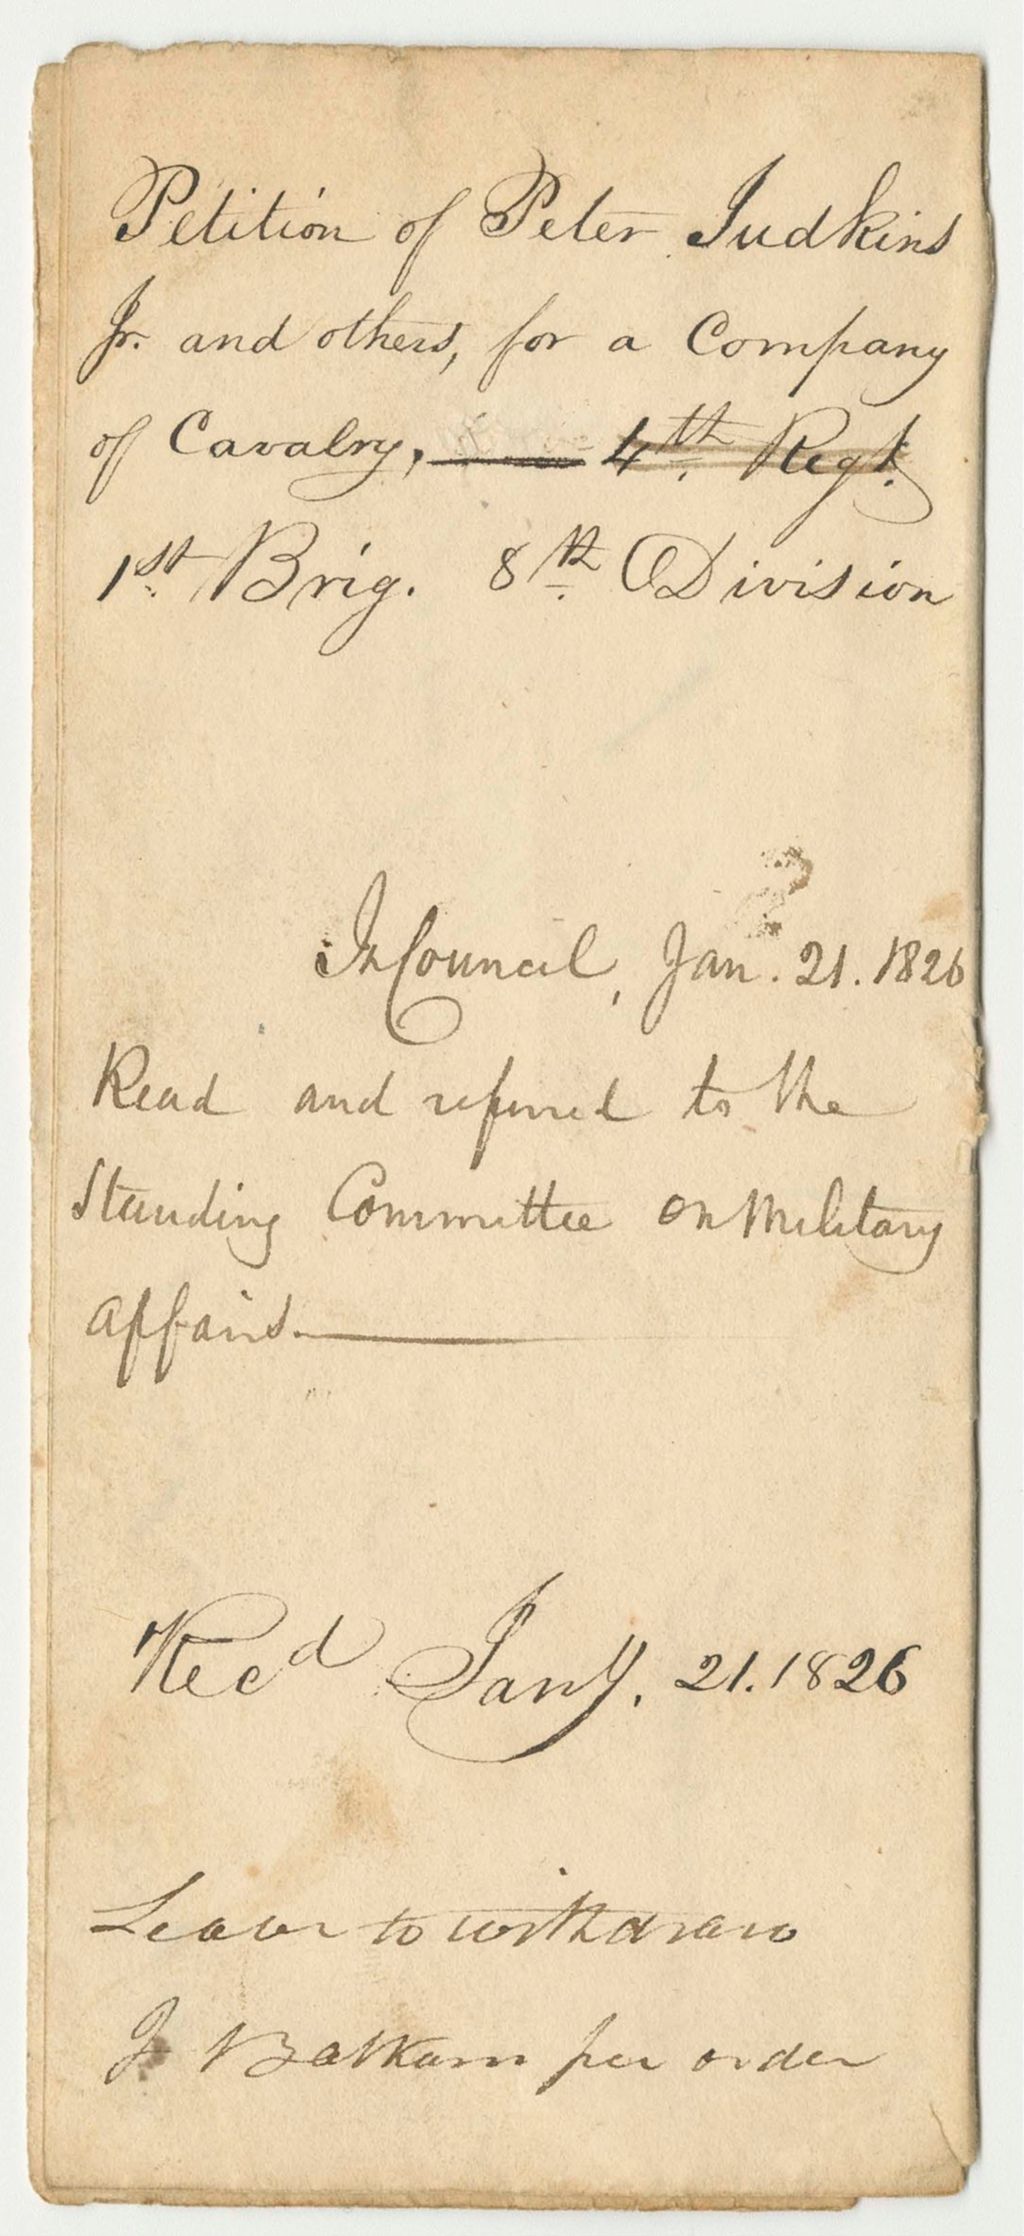 Petition of Peter Judkins
Jr. and others, for a Company
of Cavalry, 4th. Regt.
1st. Brig. 8th. Division
In Council, Jan. 21. 1826
Read and referred to the
Standing Committee on Military
affairs.
Recd Jany. 21. 1826
Leave to withdraw
J Balkam per order